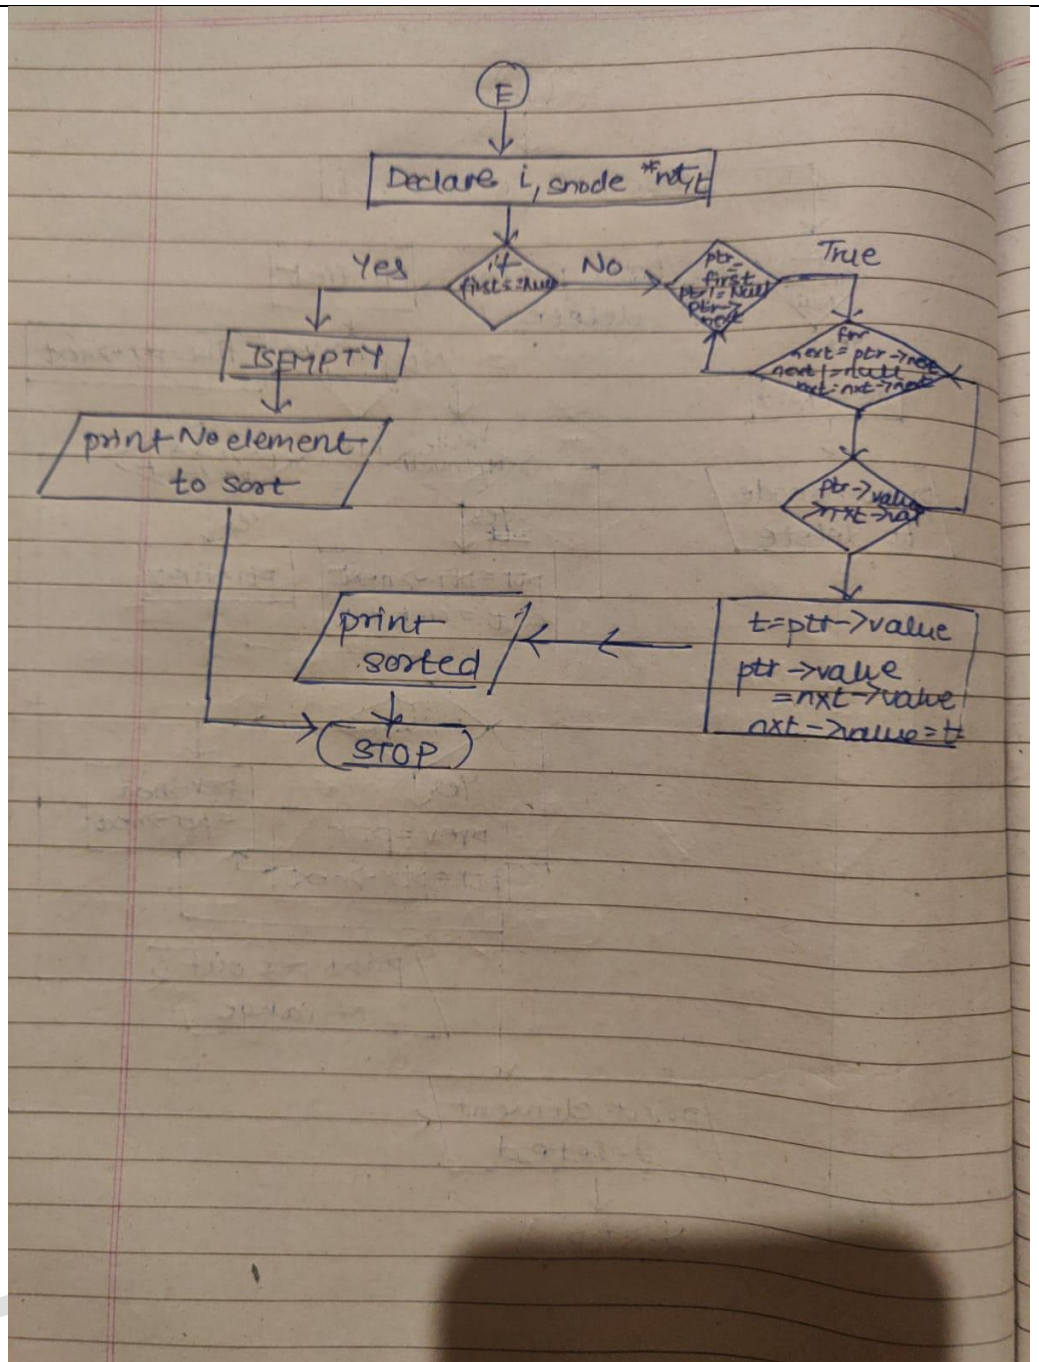 E
Declare i, snode *nxt,t
if
first==Null
Yes
No
ptr=
first
ptr!=Null
ptr->
next
True
for
next=ptr->next
next!=null
nxt=nxt->next
ISEMPTY
print No element
to sort
ptr->value
>nxt->val
t=ptr->value
ptr->value
=nxt->value
nxt->value=t
print
sorted
STOP